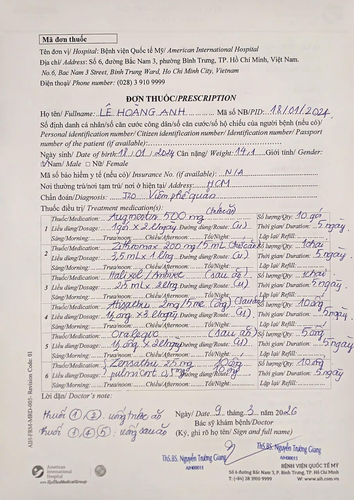 Mã đơn thuốc
Tên đơn vị/ Hospital: Bệnh viện Quốc tế Mỹ/ American International Hospital
Địa chỉ/ Address: Số 6, đường Bắc Nam 3, phường Bình Trưng, TP. Hồ Chí Minh, Việt Nam.
No.6, Bac Nam 3 Street, Binh Trung Ward, Ho Chi Minh City, Vietnam
Điện thoại/ Phone number: (028) 3 910 9999
ĐƠN THUỐC/PRESCRIPTION
Họ tên/ Fullname: LÊ HOÀNG ANH Mã số NB/PID: 18/01/2024
Số định danh cá nhân/số căn cước công dân/số căn cước/số hộ chiếu của người bệnh (nếu có)/
Personal identification number/ Citizen identification number/ Identification number/ Passport
number of the patient (if available):
Ngày sinh/ Date of birth: 18/01/2024 Cân nặng/ Weight: 14,1 Giới tính/ Gender:
Nam/ Male □ Nữ/ Female
Mã số bảo hiểm y tế (nếu có)/ Insurance No. (if available): N/A
Nơi thường trú/nơi tạm trú/ nơi ở hiện tại/ Address: HCM
Chẩn đoán/Diagnosis: J20 Viêm phế quản
Thuốc điều trị/ Treatment medicine(s):
Thuốc/Medication: Augmentin 500 mg Số lượng/Qty: 10 gói
1 Liều dùng/Dosage: 1 gói x 2 l/ngày Đường dùng/Route: (u) Thời gian/ Duration: 5 ngày
Sáng/Morning: Trưa/noon: Chiều/Afternoon: Tối/Night: Lặp lại/ Refill:
Thuốc/Medication: Zithromax 200 mg/5 mL Số lượng/Qty: 1 chai
2 Liều dùng/Dosage: 3,5 mL x 1 l/ng Đường dùng/Route: (u) Thời gian/ Duration: 5 ngày
Sáng/Morning: Trưa/noon: Chiều/Afternoon: Tối/Night: Lặp lại/ Refill:
Thuốc/Medication: (sau ăn) Số lượng/Qty: 1 chai
3 Liều dùng/Dosage: 2,5 mL x 2 l/ng Đường dùng/Route: (u) Thời gian/ Duration: 5 ngày
Sáng/Morning: Trưa/noon: Chiều/Afternoon: Tối/Night: Lặp lại/ Refill:
Thuốc/Medication: Số lượng/Qty: 10 ống
4 Liều dùng/Dosage: Đường dùng/Route: (u) Thời gian/ Duration: 5 ngày
Sáng/Morning: Trưa/noon: Chiều/Afternoon: Tối/Night: Lặp lại/ Refill:
Thuốc/Medication: (sau ăn) Số lượng/Qty: 5 ống
5 Liều dùng/Dosage: Đường dùng/Route: (u) Thời gian/ Duration: 5 ngày
Sáng/Morning: Trưa/noon: Chiều/Afternoon: Tối/Night: Lặp lại/ Refill:
Thuốc/Medication: 2,5 mg Số lượng/Qty: 10 ống
6 Liều dùng/Dosage: pulmicort Đường dùng/Route: Thời gian/ Duration: 5 ngày
Sáng/Morning: Trưa/noon: Chiều/Afternoon: Tối/Night: Lặp lại/ Refill:
Lời dặn/ Doctor's note:
thuốc (1) (2): uống trước ăn
thuốc (3) (4) (5): uống sau ăn
Ngày/ Date 9 tháng 3 năm 2026
Bác sỹ khám bệnh/Doctor
(Ký, ghi rõ họ tên/ Sign and full name)
ThS.BS. Nguyễn Trường Giang
AIH00011
ThS.BS. Nguyễn Trường Giang
AIH00011
AIH-FRM-MRD-003- Revision Code: 01
American
International
Hospital
BỆNH VIỆN QUỐC TẾ MỸ
Số 6 đường Bắc Nam 3, P. Bình Trưng, TP. Hồ Chí Minh
T: (+84) 28 3910 9999 W: www.aih.com.vn